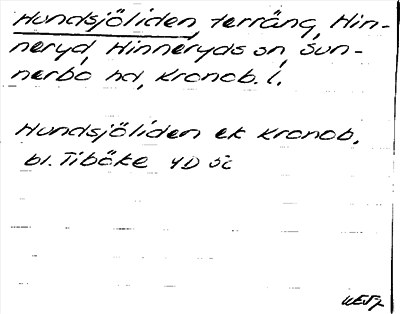 Hundsjöliden, terräng, Hin-
neryd, Hinneryds sn, Sun-
nerbo hd, Kronob. l.
Hundsjöliden ek Kronob.
bl. Tiböke 4D 5c